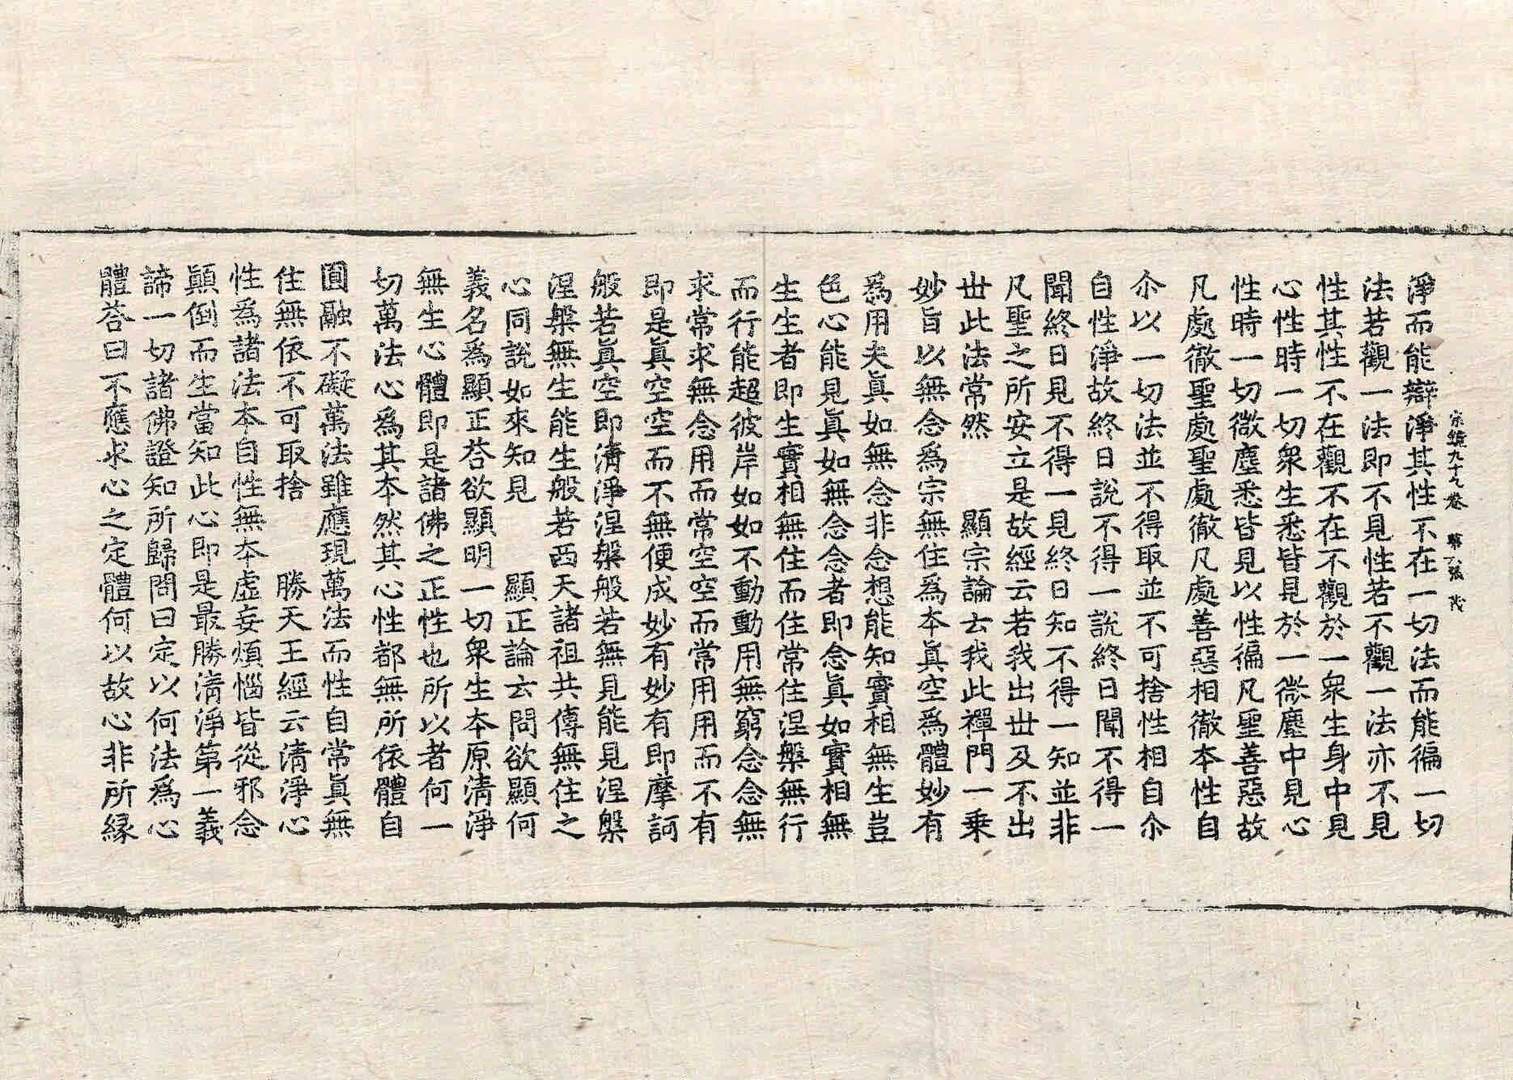 淨而能辯淨其性不在一切法而能徧一切
宗鏡九十九卷 第 張 茂
法若觀一法即不見性若不觀一法亦不見
性其性不在觀不在不觀於一衆生身中見
心性時一切衆生悉皆見於一微塵中見心
性時一切微塵悉皆見以性徧凡聖善惡故
凡處徹聖處聖處徹凡處善惡相徹本性自
尒以一切法並不得取並不可捨性相自尒
自性淨故終日說不得一說終日聞不得一
聞終日見不得一見終日知不得一知並非
凡聖之所安立是故經云若我出丗及不出
丗此法常然 顯宗論云我此禪門一乗
妙旨以無念爲宗無住爲本真空爲體妙有
爲用夫真如無念非念想能知實相無生豈
色心能見真如無念念者即念真如實相無
生生者即生實相無住而住常住涅槃無行
而行能超彼岸如如不動動用無窮念念無
求常求無念用而常空空而常用用而不有
即是真空空而不無便成妙有妙有即摩訶
般若真空即清淨涅槃般若無見能見涅槃
涅槃無生能生般若西天諸祖共傳無住之
心同說如來知見 顯正論云問欲顯何
義名爲顯正荅欲顯明一切衆生本原清淨
無生心體即是諸佛之正性也所以者何一
切萬法心爲其本然其心性都無所依體自
圓融不礙萬法雖應現萬法而性自常真無
住無依不可取捨 勝天王經云清淨心
性爲諸法本自性無本虛妄煩惱皆從邪念
顛倒而生當知此心即是最勝清淨第一義
諦一切諸佛證知所歸問曰定以何法爲心
體荅曰不應求心之定體何以故心非所縁